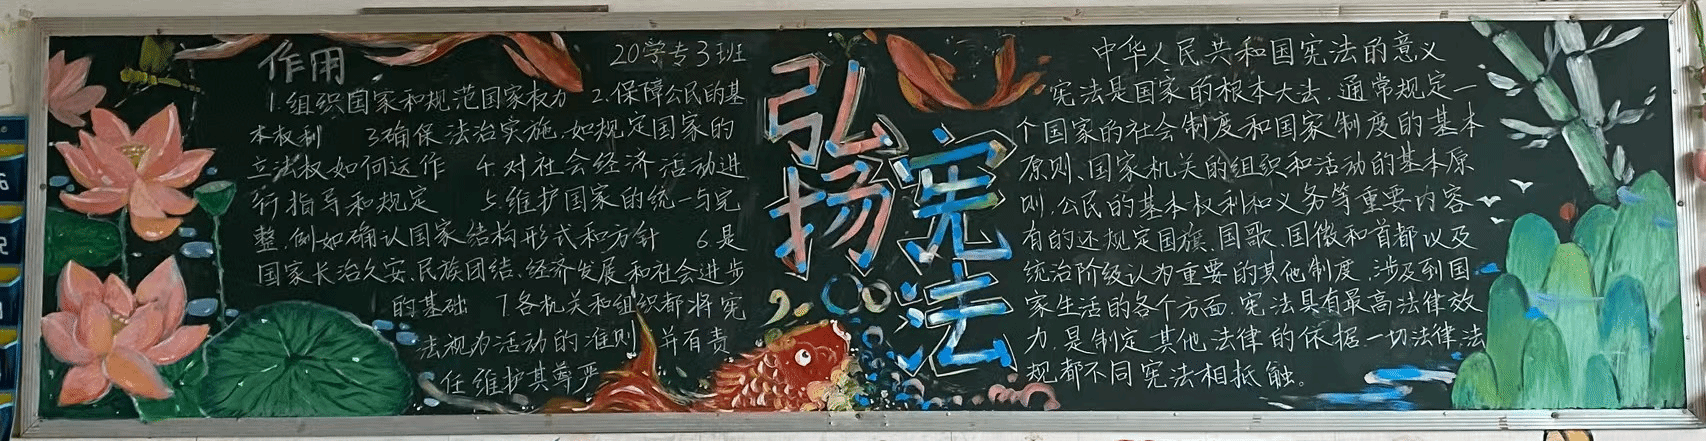 作用
20学专3班
1.组织国家和规范国家权力 2.保障公民的基
本权利 3确保法治实施,如规定国家的
立法权如何运作 4.对社会经济活动进
行指导和规定 5.维护国家的统一与完
整,例如确认国家结构形式和方针 6.是
国家长治久安、民族团结、经济发展和社会进步
的基础 7各机关和组织都将宪
法视为活动的准则 并有责
任维护其尊严
弘扬
宪法
中华人民共和国宪法的意义
宪法是国家的根本大法,通常规定一
个国家的社会制度和国家制度的基本
原则、国家机关的组织和活动的基本原
则,公民的基本权利和义务等重要内容
有的还规定国旗、国歌、国徽和首都以及
统治阶级认为重要的其他制度,涉及到国
家生活的各个方面,宪法具有最高法律效
力,是制定其他法律的依据一切法律、法
规都不同宪法相抵触。